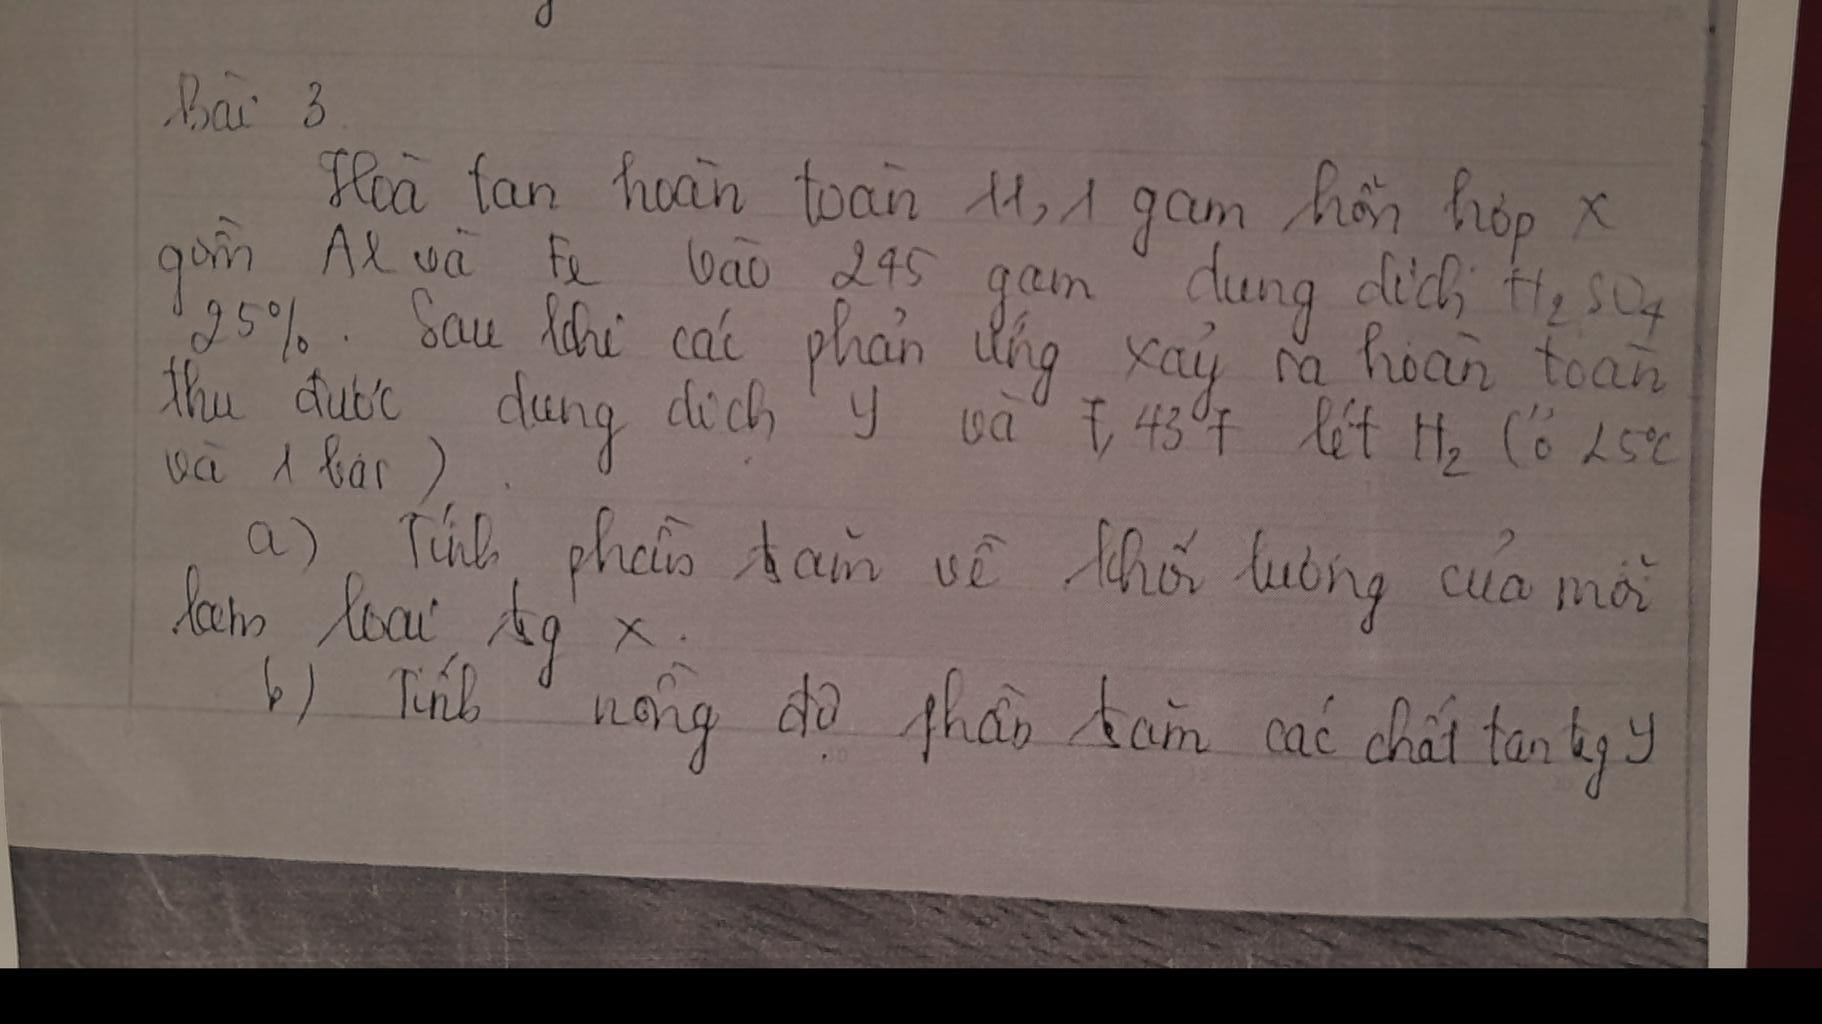 Bài 3
Hoà tan hoàn toàn 11,1 gam hỗn hợp x
gồm Al và Fe vào 245 gam dung dịch H₂SO₄
25%. Sau khi các phản ứng xảy ra hoàn toàn
thu được dung dịch y và 7,437 lít H₂ (ở 25°C
và 1 bar).
a) Tính phần trăm về khối lượng của mỗi
kim loại tg x.
b) Tính nồng độ phần trăm các chất tan tg y